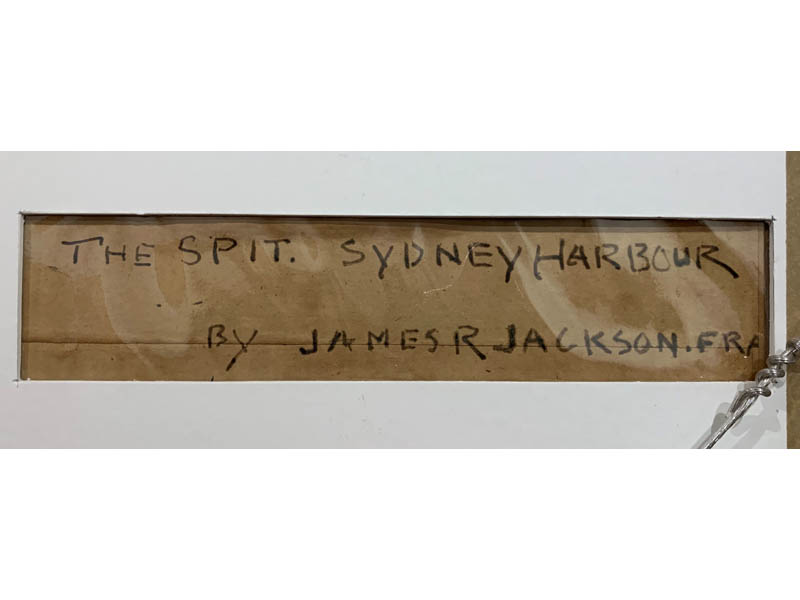 THE SPIT. SYDNEY HARBOUR
BY JAMES R JACKSON. FRA